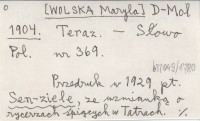 [WOLSKA Maryla] D-Mol
1904. Teraz. — Słowo
Pol. nr 369.
Przedruk w 1929 pt.
Sen-ziele, ze wzmianką o
rycerzach śpiących w Tatrach. %